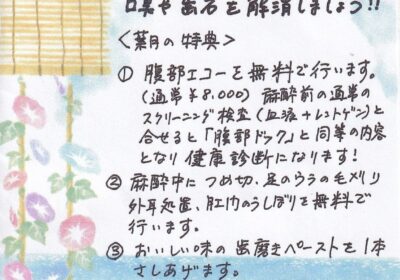 口臭や歯石を解消しましょう!!
＜葉月の特典＞
① 腹部エコーを無料で行います。
(通常￥8,000) 麻酔前の通常の
スクリーニング検査(血液＋レントゲン)と
合せると「腹部ドック」と同等の内容
となり健康診断になります!
② 麻酔中につめ切、足のウラの毛メリリ
外耳処置、肛門のうしぼりを無料で
行います。
③ おいしい味の歯磨きペーストを1本
さしあげます。